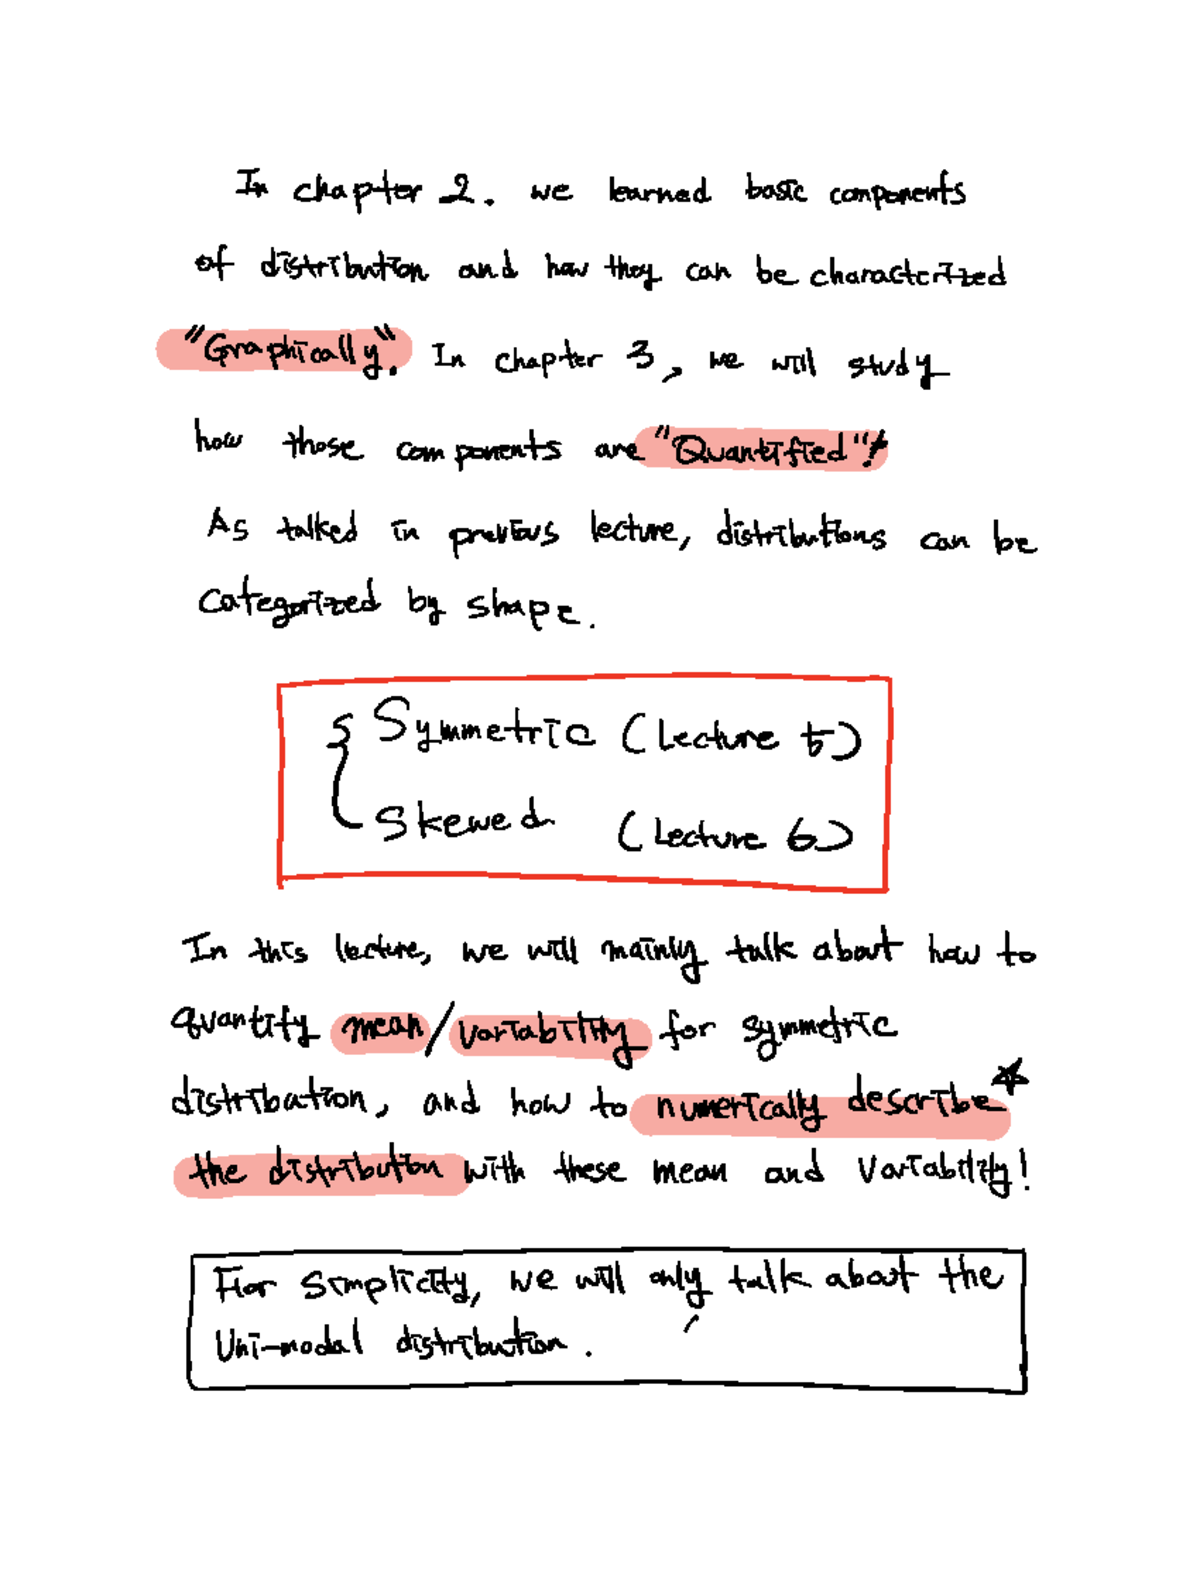 In chapter 2. we learned basic components
of distribution and how they can be characterized
"Graphically". In chapter 3, we will study
how those components are "Quantified"!
As talked in previous lecture, distributions can be
categorized by shape.
Symmetric (Lecture 5)
Skewed (Lecture 6)
In this lecture, we will mainly talk about how to
quantify mean/variability for symmetric
distribution, and how to numerically describe
the distribution with these mean and variability!
For simplicity, we will only talk about the
Uni-modal distribution.